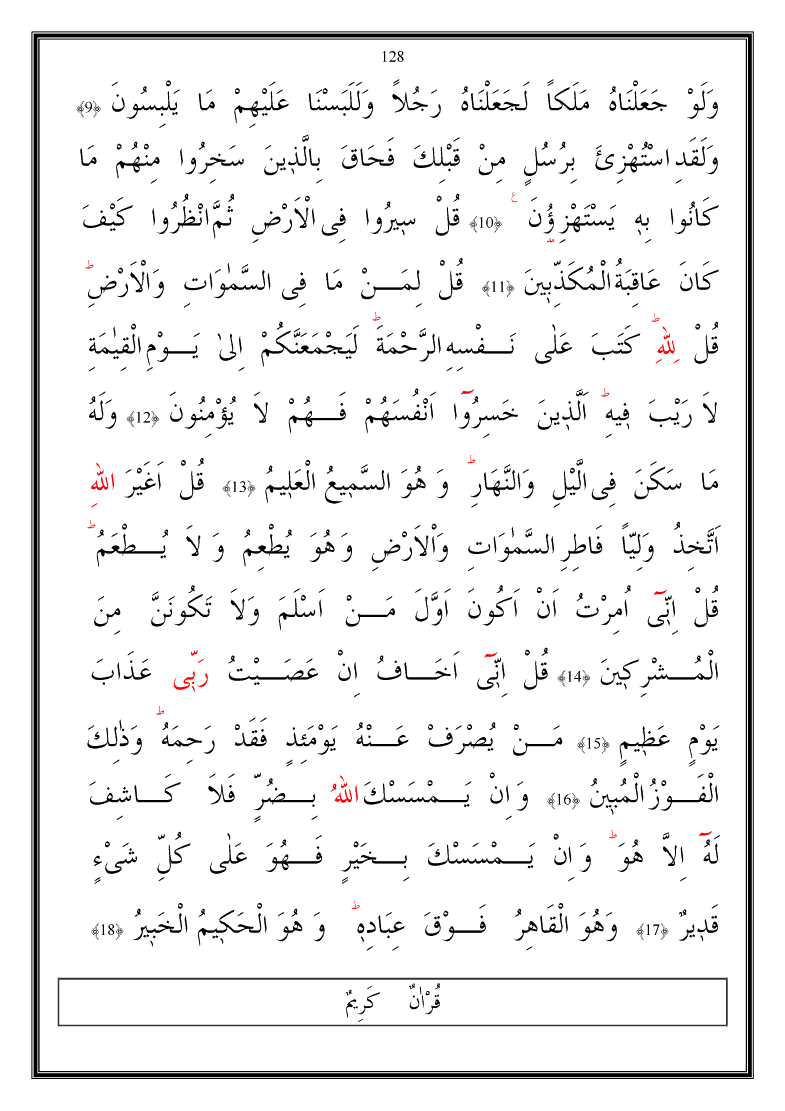 128
وَلَوْ جَعَلْنَاهُ مَلَكاً لَجَعَلْنَاهُ رَجُلاً وَلَلَبَسْنَا عَلَيْهِمْ مَا يَلْبِسُونَ ﴿9﴾
وَلَقَدِ اسْتُهْزِئَ بِرُسُلٍ مِنْ قَبْلِكَ فَحَاقَ بِالَّذ۪ينَ سَخِرُوا مِنْهُمْ مَا
كَانُوا بِه۪ يَسْتَهْزِؤُ۫نَ ۟ ﴿10﴾ قُلْ س۪يرُوا فِى الْاَرْضِ ثُمَّ انْظُرُوا كَيْفَ
كَانَ عَاقِبَةُ الْمُكَذِّب۪ينَ ﴿11﴾ قُلْ لِمَـــنْ مَا فِى السَّمٰوَاتِ وَالْاَرْضِۜ
قُلْ لِلّٰهِۜ كَتَبَ عَلٰى نَـــفْسِهِ الرَّحْمَةَۜ لَيَجْمَعَنَّكُمْ اِلىٰ يَـــوْمِ الْقِيٰمَةِ
لاَ رَيْبَ ف۪يهِۜ اَلَّذ۪ينَ خَسِرُٓوا اَنْفُسَهُمْ فَـــهُمْ لاَ يُؤْمِنُونَ ﴿12﴾ وَلَهُ
مَا سَكَنَ فِى الَّيْلِ وَالنَّهَارِۜ وَ هُوَ السَّم۪يعُ الْعَل۪يمُ ﴿13﴾ قُلْ اَغَيْرَ اللّٰهِ
اَتَّخِذُ وَلِيّاً فَاطِرِ السَّمٰوَاتِ وَاْلاَرْضِ وَهُوَ يُطْعِمُ وَ لاَ يُـــطْعَمُۜ
قُلْ اِنّ۪ٓى اُمِرْتُ اَنْ اَكُونَ اَوَّلَ مَـــنْ اَسْلَمَ وَلاَ تَكُونَنَّ مِنَ
الْمُـــشْرِك۪ينَ ﴿14﴾ قُلْ اِنّ۪ٓى اَخَـــافُ اِنْ عَصَـــيْتُ رَبّ۪ى عَذَابَ
يَوْمٍ عَظ۪يمٍ ﴿15﴾ مَـــنْ يُصْرَفْ عَـــنْهُ يَوْمَئِذٍ فَقَدْ رَحِمَهُۜ وَذٰلِكَ
الْفَـــوْزُ الْمُب۪ينُ ﴿16﴾ وَ اِنْ يَـــمْسَسْكَ اللّٰهُ بِـــضُرٍّ فَلاَ كَـــاشِفَ
لَهُٓ اِلاَّ هُوَۜ وَ اِنْ يَـــمْسَسْكَ بِـــخَيْرٍ فَـــهُوَ عَلٰى كُلِّ شَىْءٍ
قَد۪يرٌ ﴿17﴾ وَهُوَ الْقَاهِرُ فَـــوْقَ عِبَادِه۪ۜ وَ هُوَ الْحَك۪يمُ الْخَب۪يرُ ﴿18﴾
قُرْاٰنٌ كَرِيمٌ